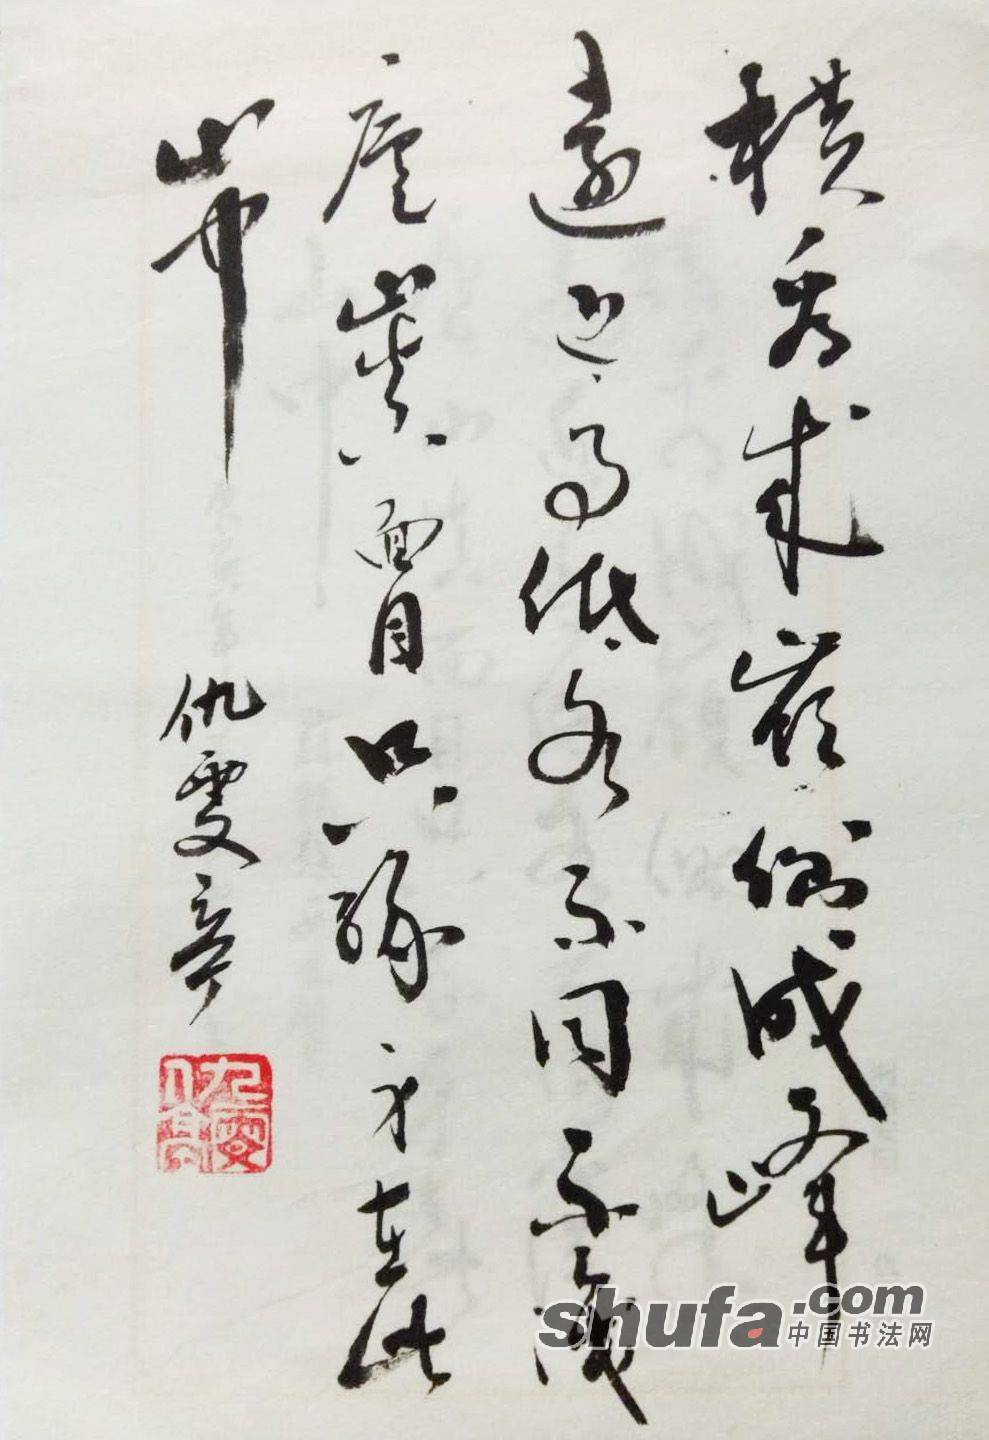 橫看成嶺側成峰
遠近高低各不同不識
廬山真面目只緣身在此
山中
仇雯
shufa.com
中国书法网